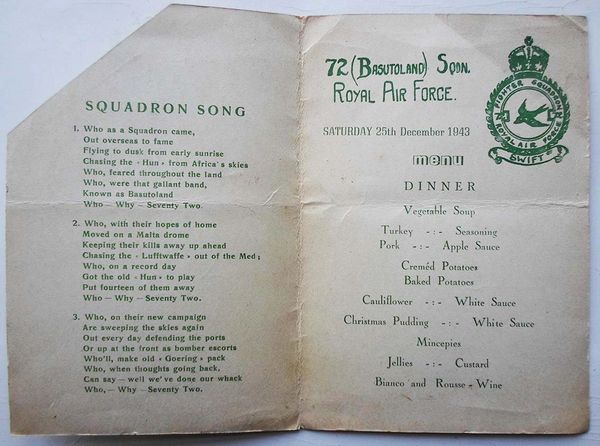 SQUADRON SONG
1. Who as a Squadron came,
Out overseas to fame
Flying to dusk from early sunrise
Chasing the «Hun» from Africa's skies
Who, feared throughout the land
Who, were that gallant band,
Known as Basutoland
Who — Why — Seventy Two.
2. Who, with their hopes of home
Moved on a Malta drome
Keeping their kills away up ahead
Chasing the «Lufftwaffe» out of the Med;
Who, on a record day
Got the old «Hun» to play
Put fourteen of them away
Who — Why — Seventy Two.
3. Who, on their new campaign
Are sweeping the skies again
Out every day defending the ports
Or up at the front as bomber escorts
Who'll, make old «Goering» pack
Who, when thoughts going back,
Can say — well we've done our whack
Who, — Why — Seventy Two.
72 (BASUTOLAND) SQDN.
ROYAL AIR FORCE.
FIGHTER SQUADRON
ROYAL AIR FORCE
SWIFT
SATURDAY 25th December 1943
menu
DINNER
Vegetable Soup
Turkey -:- Seasoning
Pork -:- Apple Sauce
Creméd Potatoes
Baked Potatoes
Cauliflower -:- White Sauce
Christmas Pudding -:- White Sauce
Mincepies
Jellies -:- Custard
Bianco and Rousse - Wine